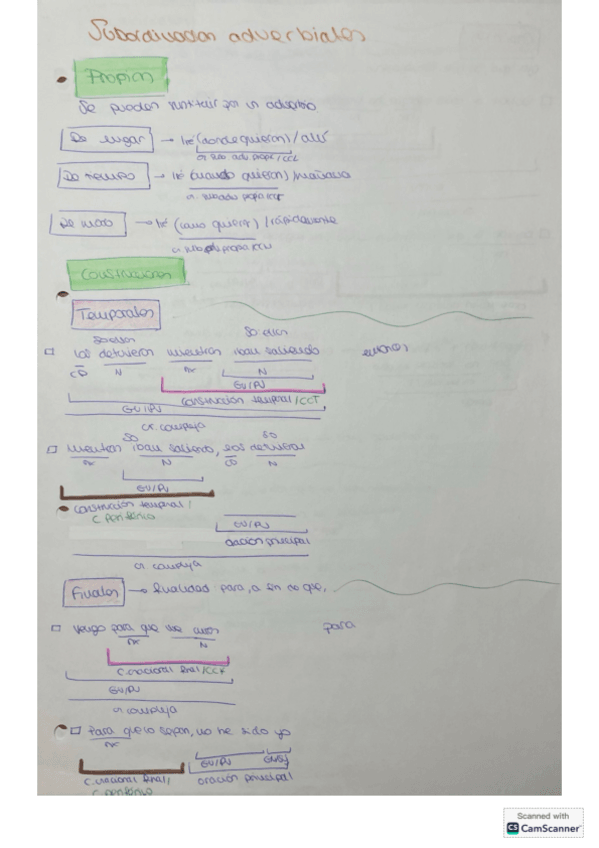 Subordinadas adverbiales
Propias
Se pueden sustituir por un adverbio
De lugar → Iré (donde quieran) / allí
or sub adv. propia / CCL
De tiempo → Iré (cuando quieran) / mañana
or. sub adv propia CCT
De modo → Iré (como quieras) / rápidamente
or sub adv propia CCM
Construcciones
Temporales
SO: ellos SO: ellos
los detuvieron mientras iban saliendo
CD N nx N
GV/PV
construcción temporal / CCT
GV/PV
or. compleja
SO SO
mientras iban saliendo, los detuvieron
nx N CD N
GV/PV
construcción temporal /
C. periférico
GV/PV
oración principal
or compleja
Finales → finalidad para, a fin de que,
Vengo para que me
para
nx N
C. oracional final / CCF
GV/PV
or compleja
Para que lo sepan, no he sido yo
nx
GV/PV GN/SJ
C. oracional final / oración principal
C. periférico
Scanned with
CS CamScanner